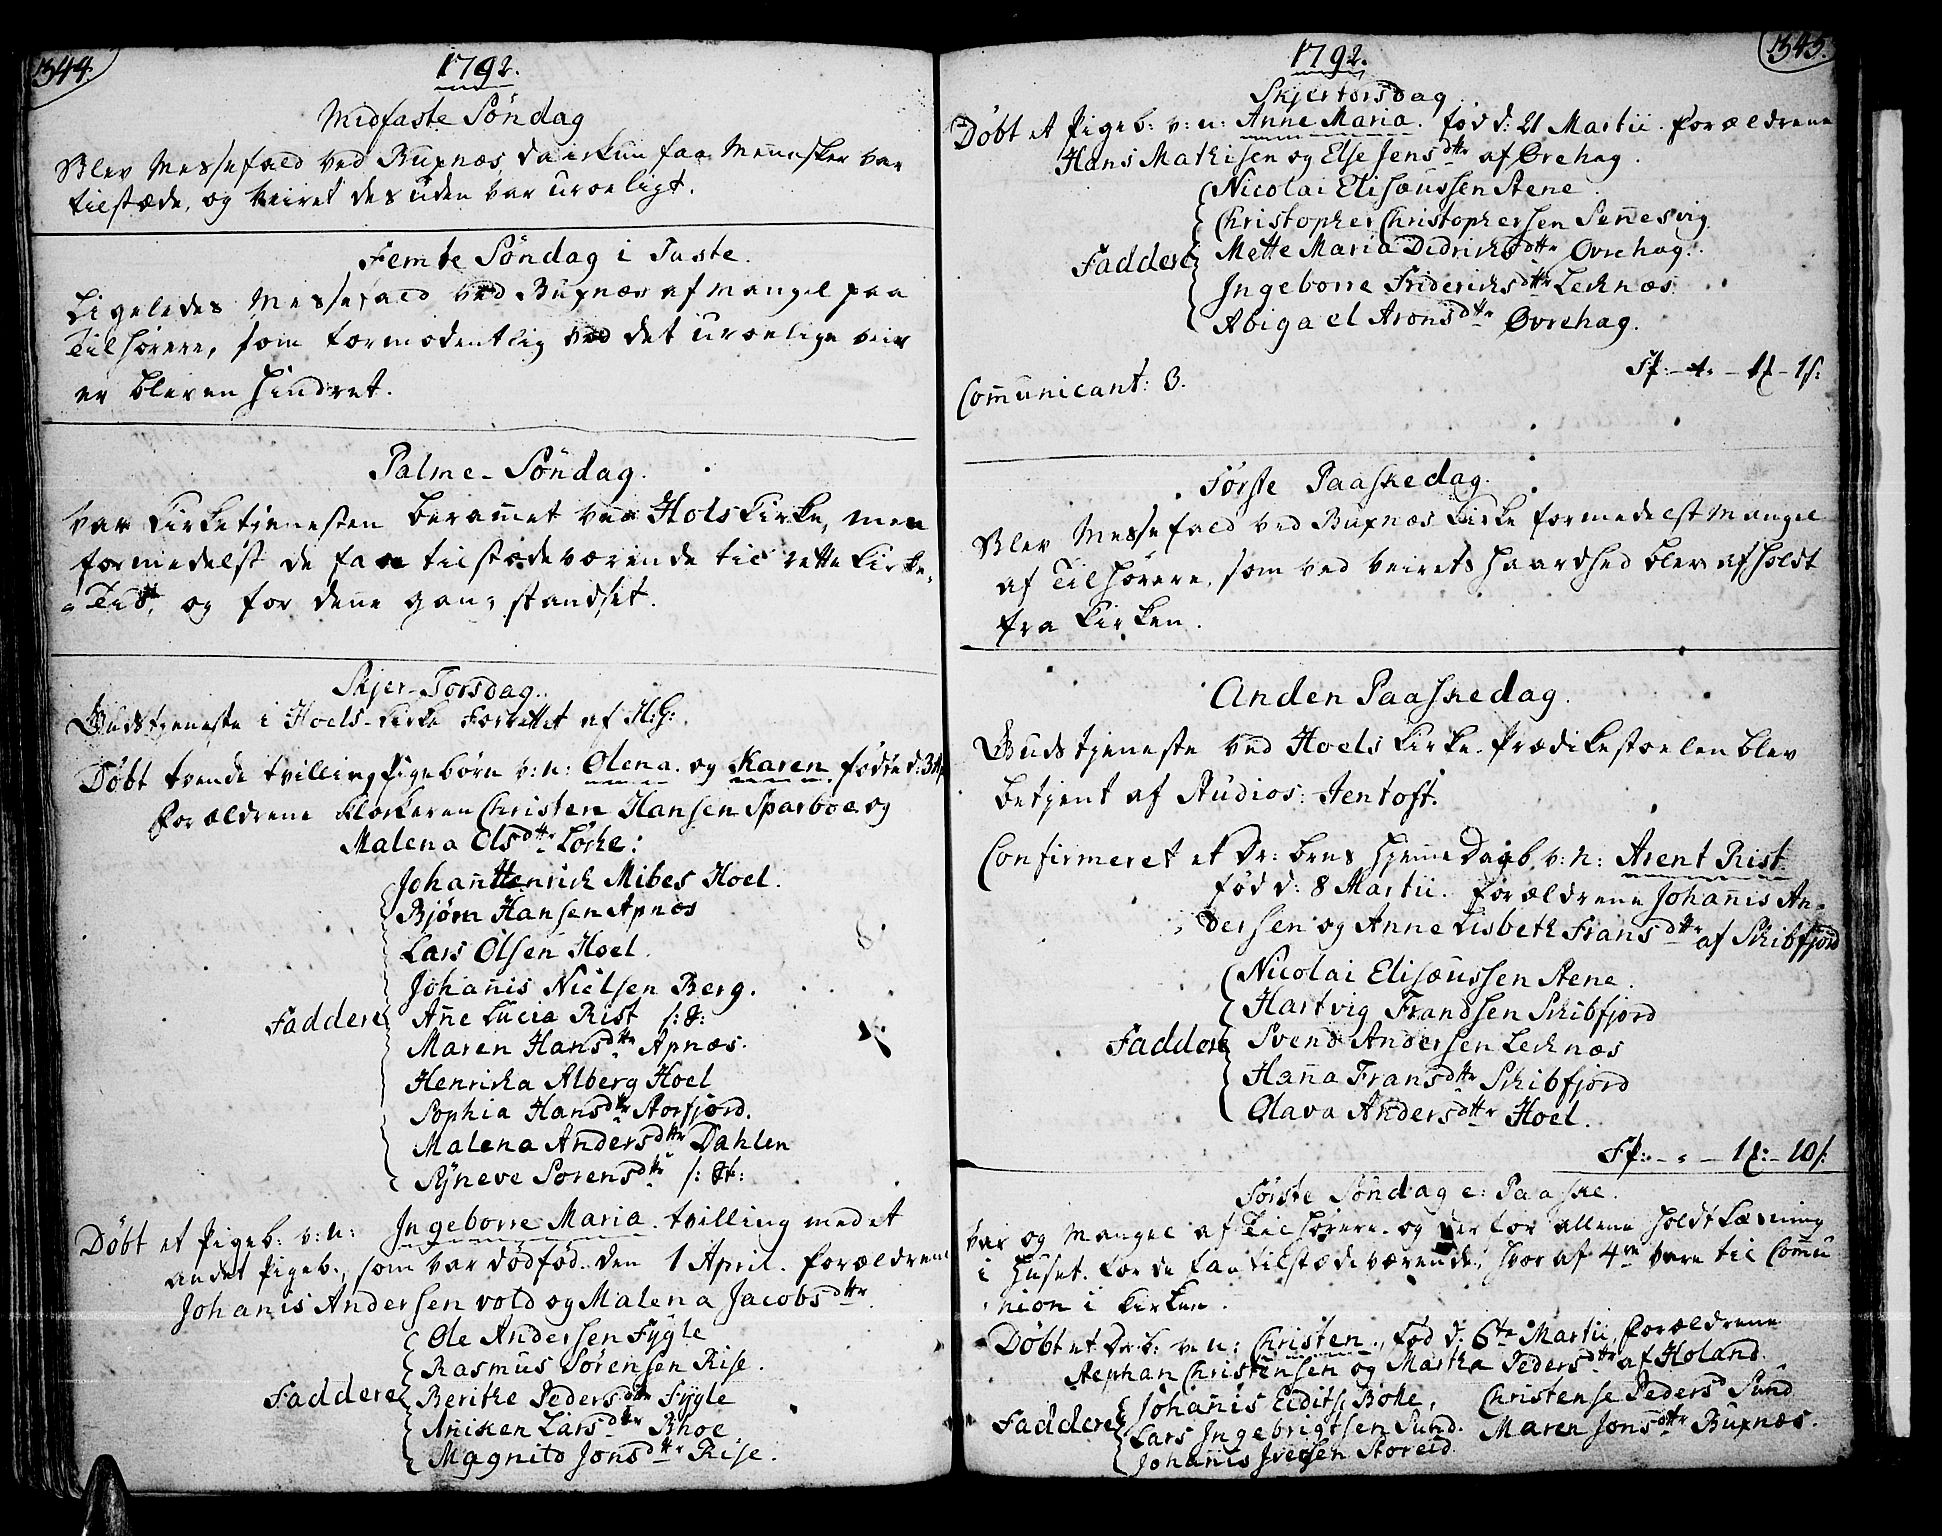 344.
1792.
Midfaste Söndag
Blev Messefald ved Buxnæs, da ikun faa Mennesker var
tilstæde, og veiret des uden var uroeligt.
Femte Söndag i Faste.
Ligeledes Messefald ved Buxnæs af Mangel paa
Tilhörere, som formodentlig ved det uroelige veir
er bleven hindret.
Palme-Söndag.
Var Kirketjenesten beramet ved Hols Kirke, men
formedelst de faa tilstædeværende til rette Kirke-
Tid, og for dene gang standset.
Skjer-Torsdag.
Gudstjeneste i Hoels-Kirke forrettet af H:G:
Döbt tvende tvilling Pigebörn v: n: Olena. og Karen födte d:
forældrene Klokkeren Christen Hansen Sparboe og
Malena Olsdttr Löcke:
Johan Henrich Mibes Hoel.
Bjørn Hansen Apnæs
Lars Olsen Hoel.
Johanis Nielsen Berg.
Faddere
Ane Lucia Rist
Maren Hansdttr Apnæs.
Henricha Alberg Hoel
Sophia Hansdttr Storfjord.
Malena Andersdttr Dahlen
Syneve Sorensdttr
Döbt et Pigeb: v: n: Ingeborre Maria. tvilling med et
andet Pigeb., som var dödfödt. den 1 April. forældrene
Johanis Andersen vold og Malena Jacobsdttr
Ole Andersen Fygle
Rasmus Sörensen Rise.
Faddere Berithe Pedersdttr Fygle
Aniken Larsdttr Bhoe
Magnild Jonsdttr Rise.
345.
1792.
Skjertorsdag
Döbt et Pigeb: v: n: Anne Maria. föd d: 21 Martii. forældrene
Hans Mathisen og Else Jensdttr af Øvrehag.
Nicolai Elisæussen Stene
Christopher Christophersen Sennesvig
Faddere Mette Maria Didrichsdttr Øvrehag.
Ingeborre Friderichsdttr Lecknæs
Abigael Aronsdttr Øvrehag.
Communicant: 3.
Förste Paaskedag.
Blev Messefald ved Buxnæs Kirke formedelst Mangel
af Tilhörere, som ved veirets Haardhed blev afholdt
fra Kirken.
Anden Paaskedag.
Gudstjeneste ved Hoels Kirke. Prædikestoelen blev
betjent af Studios: Jentoft.
Confirmeret et Dr: bens hjemme Daab v: n: Arent Rist
föd d: 8 Martii. forældrene Johanis An-
dersen og Anne Lisbeth Fransdttr af Schibfjord
Nicolai Elisæussen Stene.
Hartvig Frandsen Schibfjord
Faddere Svend Andersen Lecknæs
Hana Fransdttr Schibfjord
Olava Andersdttr Hoel.
Förste Söndag e: Paaske.
Var og Mangel af Tilhörere. og derfor allene holdt Læsning
i Huset for de faa tilstædeværende, hvoraf 4re vare til Comu
nion i Kirken.
Döbt et Dr:b: v: n: Christen., föd d. 6te Martii, forældrene
Stephan Christensen og Martha Pedersdttr af Holand.
Johanis Eiditse Bolle, Christense Pedersd Sund
Faddere Lars Ingebrigtsen Sund. Maren Jonsdttr Buxnæs.
Johanis Iversen Storeid.